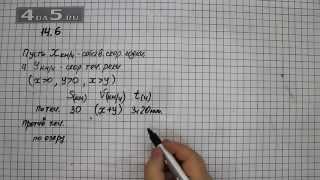 4DA5.RU
14.6
Пусть x км/ч - собств. скор. лодки
а y км/ч - скор. теч. реки
(x>0, y>0, x>y)
S(км) V(км/ч) t(ч)
По теч. 30 (x+y) 3ч20мин.
Против теч.
по озеру